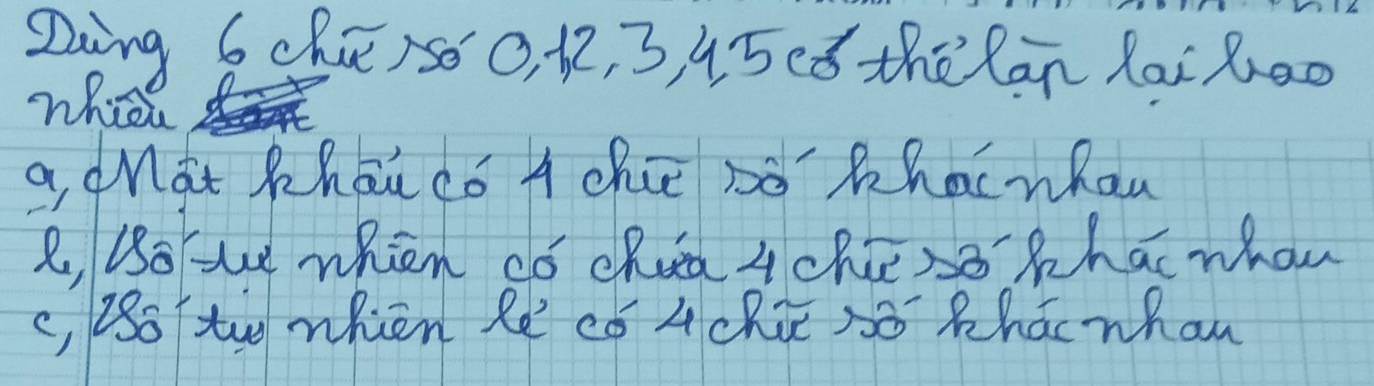 Dùng 6 chữ số 0,1,2,3,4,5 có thể lặp lại bao
nhiêu
a, Mật khẩu có 4 chữ số khác nhau
b, Số tự nhiên có chứa 4 chữ số khác nhau
c, Số tự nhiên lẻ có 4 chữ số khác nhau